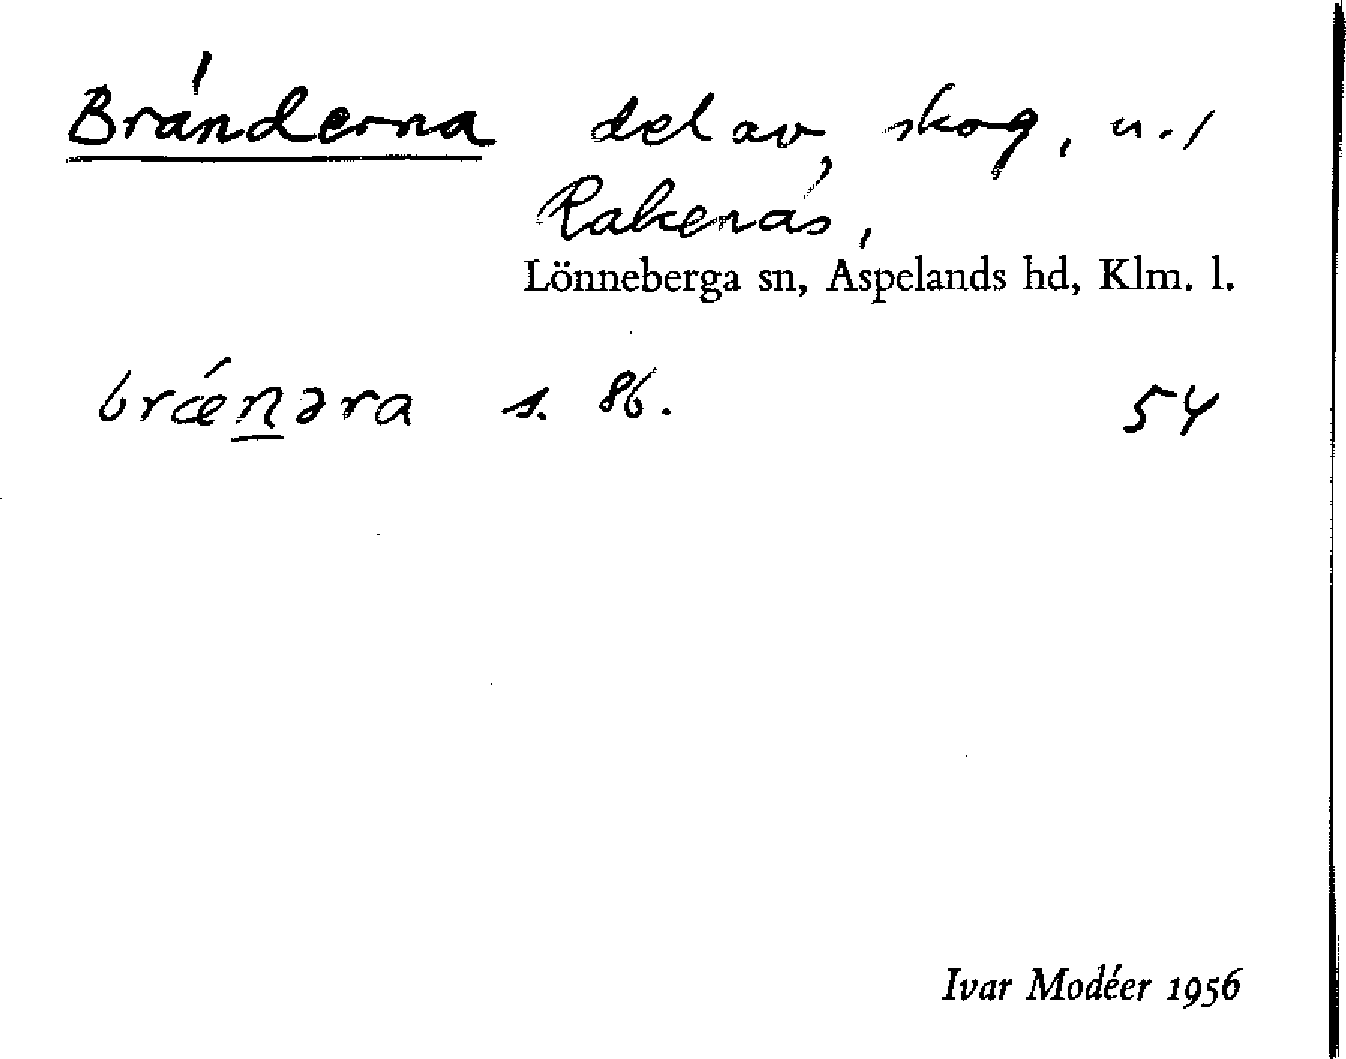 Bränderna del av skog, u./
Rakenäs,
Lönneberga sn, Aspelands hd, Klm. l.
brǽn̲əra s. 86. 54
Ivar Modéer 1956